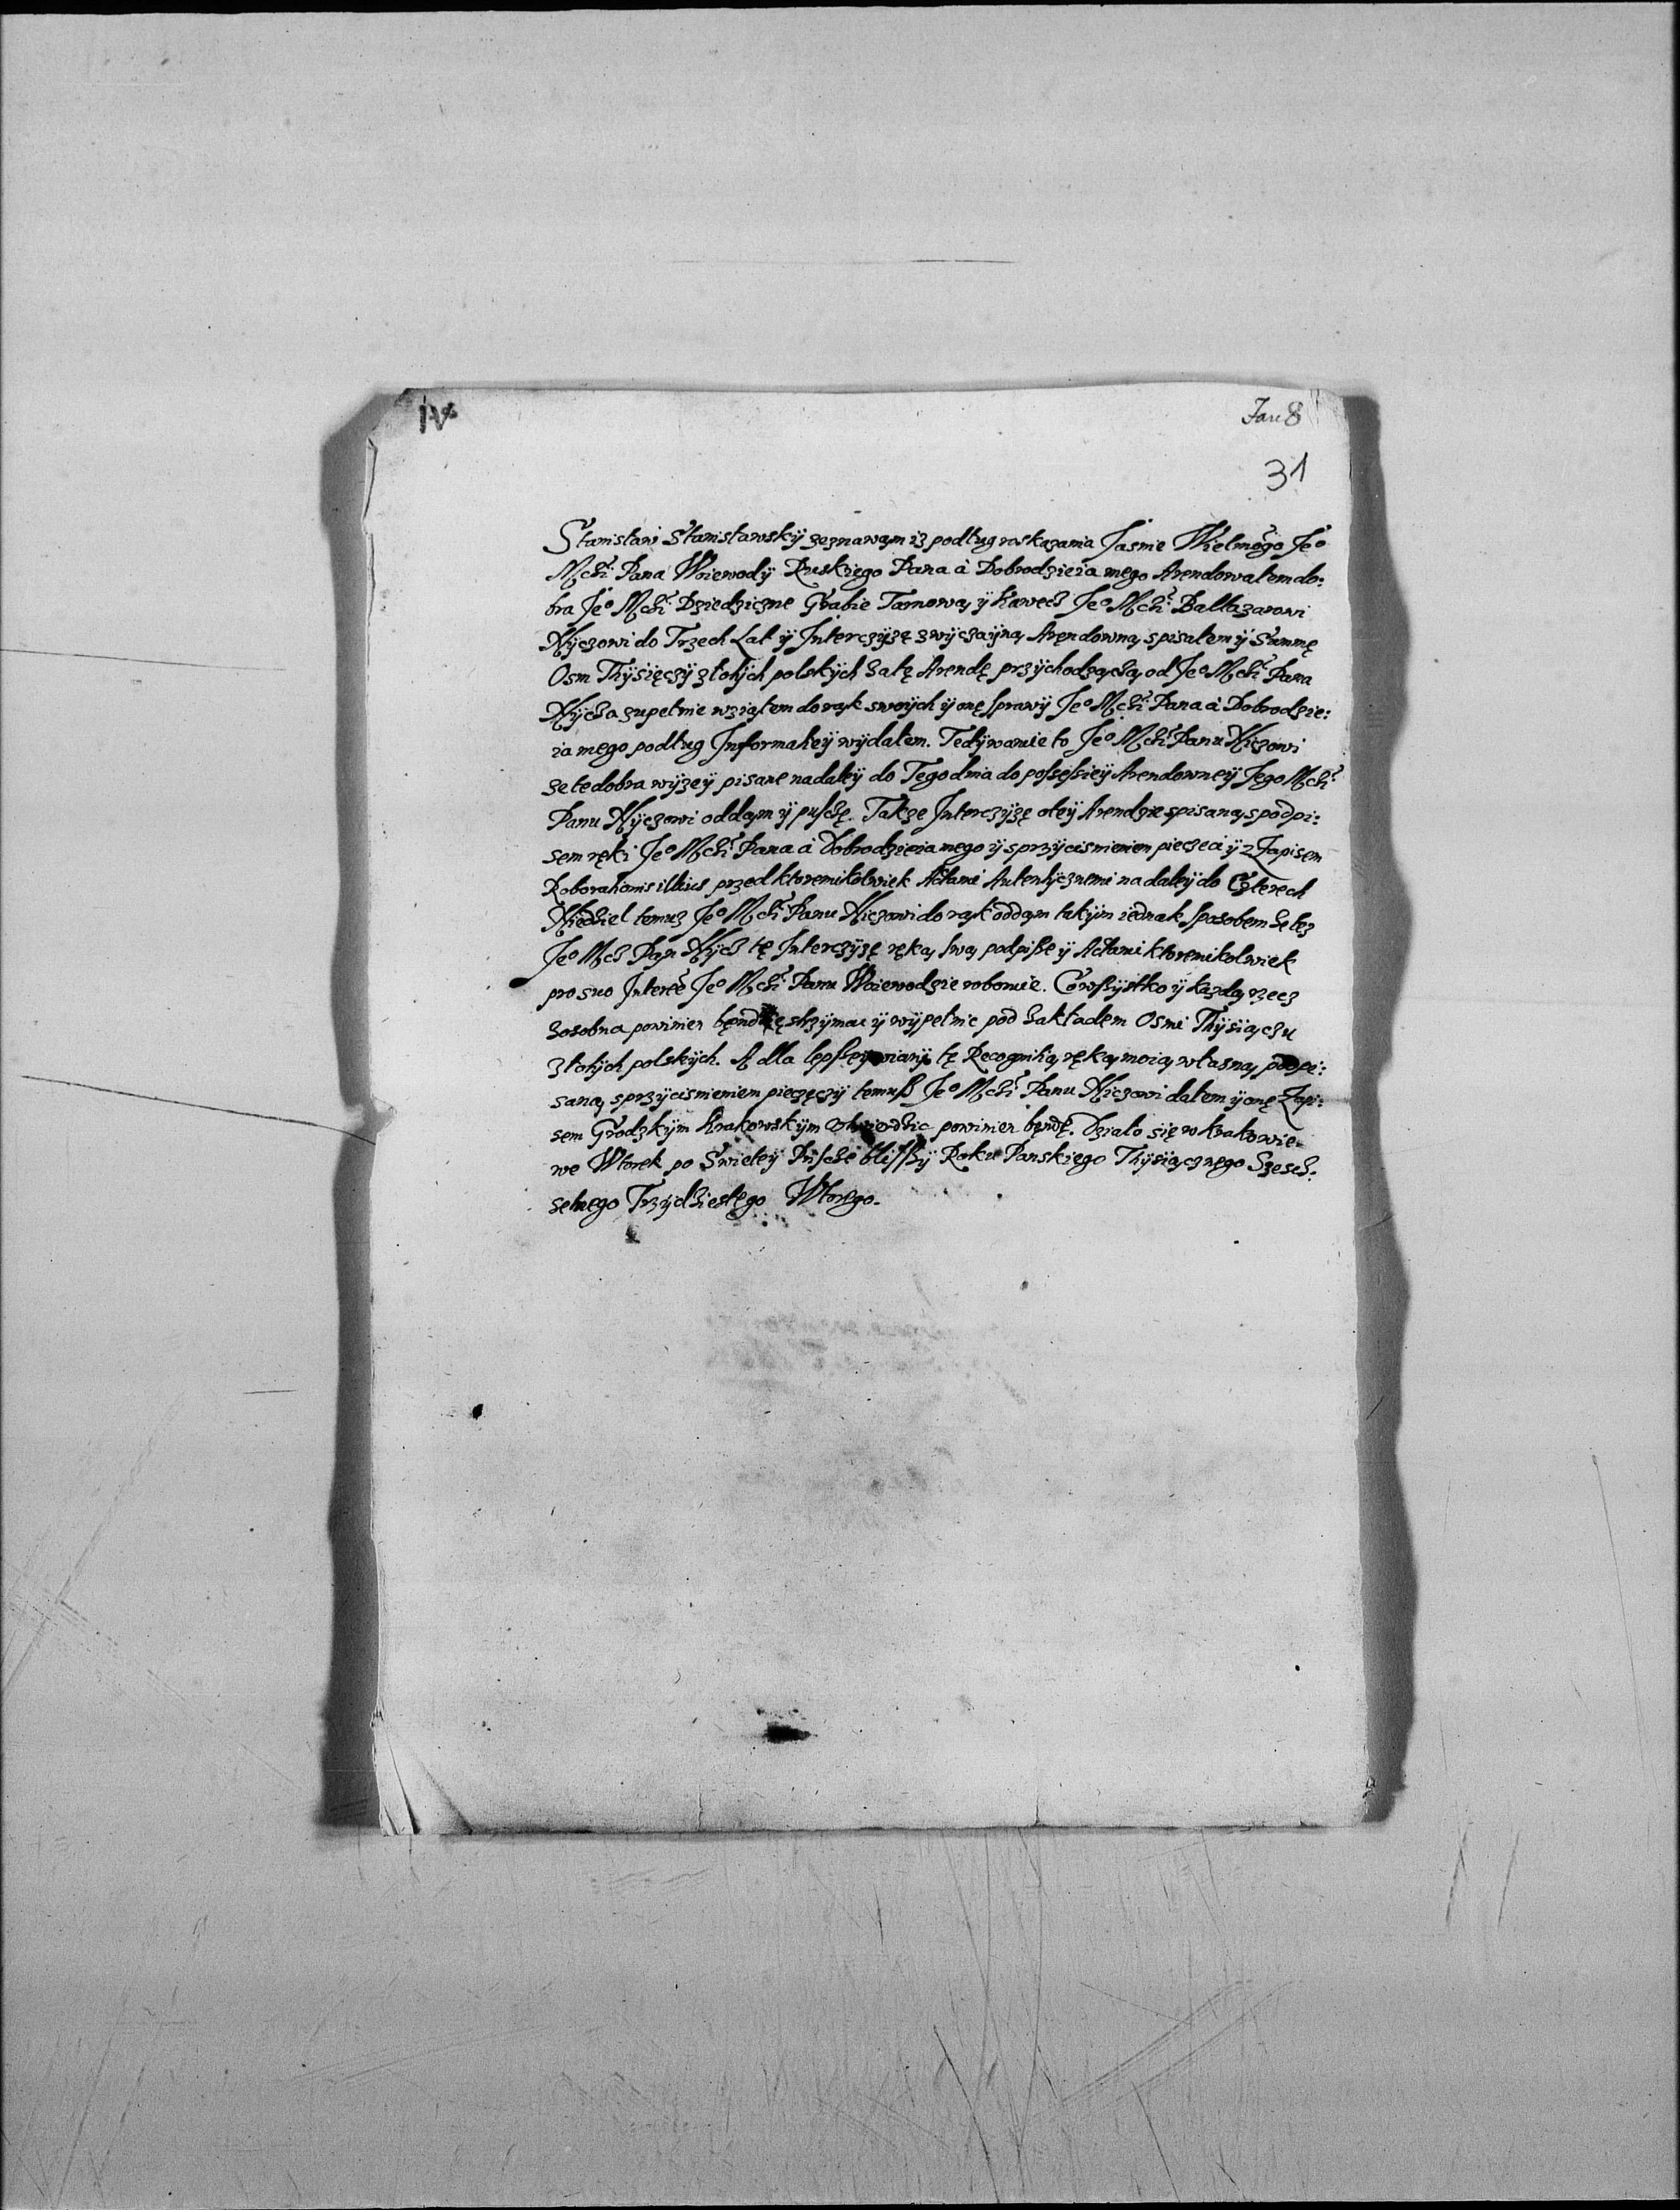 IV
Jan 8
31
Stanisław Stanisławskÿ zeznawam iz podług roskazania Jasnie Wielmõgo Jeº
Mchi Pana Woiewodÿ Ruskiego Pana à Dobrodzieia mego Arendowałem do:
bra Jeº Mchi Dziedziczne Grabie Tarnowa ÿ Jeº Mchi Baltazarowi
Nÿczowi do Trzech Lat ÿ Interczÿzę zwÿczaÿną Arendowną spisałem ÿ Summę
Osm Thÿsięczÿ złotÿch polskÿch za tę Arendę przÿchodzączą od Jeº Mchi Pana
Nÿcza zupełnie wziąłem do rąk swoÿch ÿ onę sprawÿ Jeº Mchi Pana à Dobrodzie:
ia mego podług Informatieÿ wÿdałem. Tedÿ waruie to Jeº Mchi Panu Niczowi
ze te dobra wÿzeÿ pisane nadaleÿ do Tego dnia do possessieÿ Arendowneÿ Jego Mchi
Panu Nÿczowi oddam ÿ puszczę. Takze Interczÿzę o teÿ Arendzie spisaną s podpi:
sem ręki Jeº Mchi Pana à Dobrodzieia mego ÿ s przÿcisnieniem pieczeci ÿ z Zapisem
Roborationis illius przed ktoremikolwiek Actami Autentÿcznemi nadaleÿ do Czterech
Niedziel temuz Jeº Mchi Panu Niczowi do rąk oddam takÿm iednak sposobem ze tez
Jeº Mcz Pan Nÿcz tę Interczÿzę ręką swą podpisze ÿ Actami ktoremikolwiek
pro suo Interẽe Jeº Mchi Panu Woiewodzie roboruie. Co wszÿstko ÿ kazdą rzecz
zosobna powinien będę strzÿmac ÿ wÿpełnic pod zakładem Osmi Thÿsiączu
złotÿch polskÿch. A dla lepszeÿ wiarÿ tę Recognitią ręką moią własną podpi:
saną s przÿcisnieniem pieczęczÿ temusz Jeº Mchi Panu Niczowi dałem ÿ onę Zapi:
sem Grodzkÿm Krakowskÿm utwierdzic powinien będę. Działo się w Krakowie
we Wtorek po Swieteÿ Prisce blisszÿ Roku Panskiego Thÿsiącznego Szesch:
setnego Trzÿdziestego Wtorego.